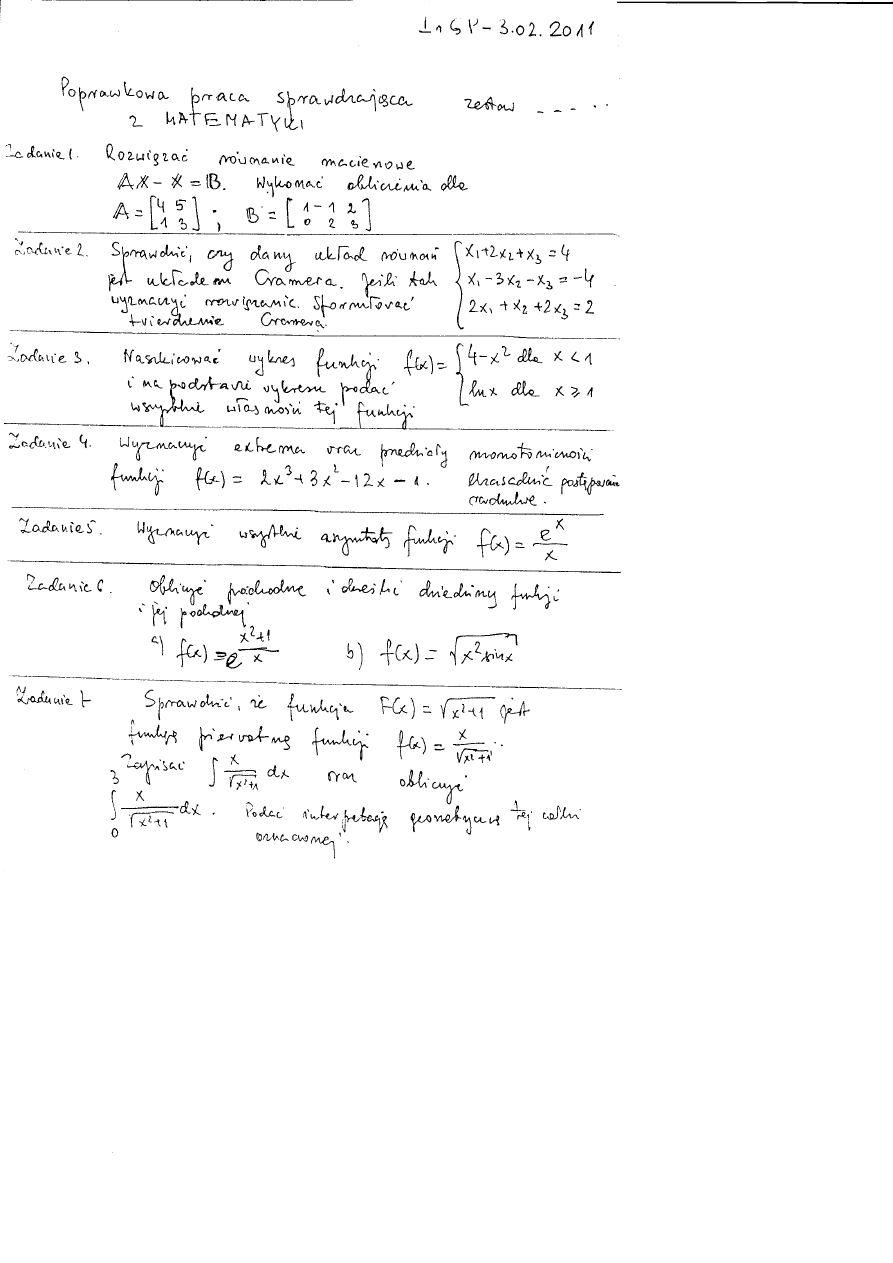 InSP-3.02.2011
Poprawkowa praca sprawdzająca zestaw - - - - -
z MATEMATYKI
Zadanie 1. Rozwiązać równanie macierzowe
AX - X = B. Wykonać obliczenia dla
A = [4 5; 1 3] ; B = [1 -1 2; 0 2 3]
Zadanie 2. Sprawdzić, czy dany układ równań { x₁+2x₂+x₃=4
jest układem Cramera. Jeśli tak { x₁-3x₂-x₃=-4
wyznaczyć rozwiązanie. Sformułować { 2x₁+x₂+2x₃=2
twierdzenie Cramera.
Zadanie 3. Naszkicować wykres funkcji f(x)= { 4-x² dla x<1
i na podstawie wykresu podać { lnx dla x≥1
wszystkie własności tej funkcji
Zadanie 4. Wyznaczyć extrema oraz przedziały monotoniczności
funkcji f(x) = 2x³+3x²-12x-1. Uzasadnić postępowanie
rachunkowe.
Zadanie 5. Wyznaczyć wszystkie asymptoty funkcji f(x) = e^x/x
Zadanie 6. Obliczyć pochodne i określić dziedziny funkcji
i jej pochodnej
a) f(x) = e^((x²+1)/x) b) f(x) = √(x² sinx)
Zadanie 7 Sprawdzić, że funkcja F(x) = √(x²+1) jest
funkcją pierwotną funkcji f(x) = x/√(x²+1).
Zapisać ∫ x/√(x²+1) dx oraz obliczyć
∫₀³ x/√(x²+1) dx. Podać interpretację geometryczną tej całki
oznaczonej.